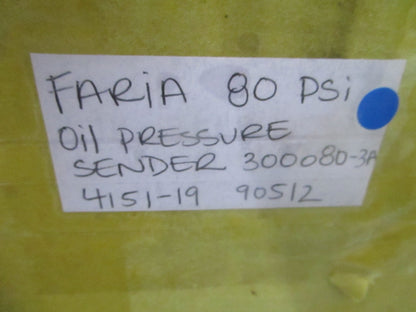 FARiA 80 PSi
Oil PRESSURE
SENDER 300080-3A
4151-19 90512